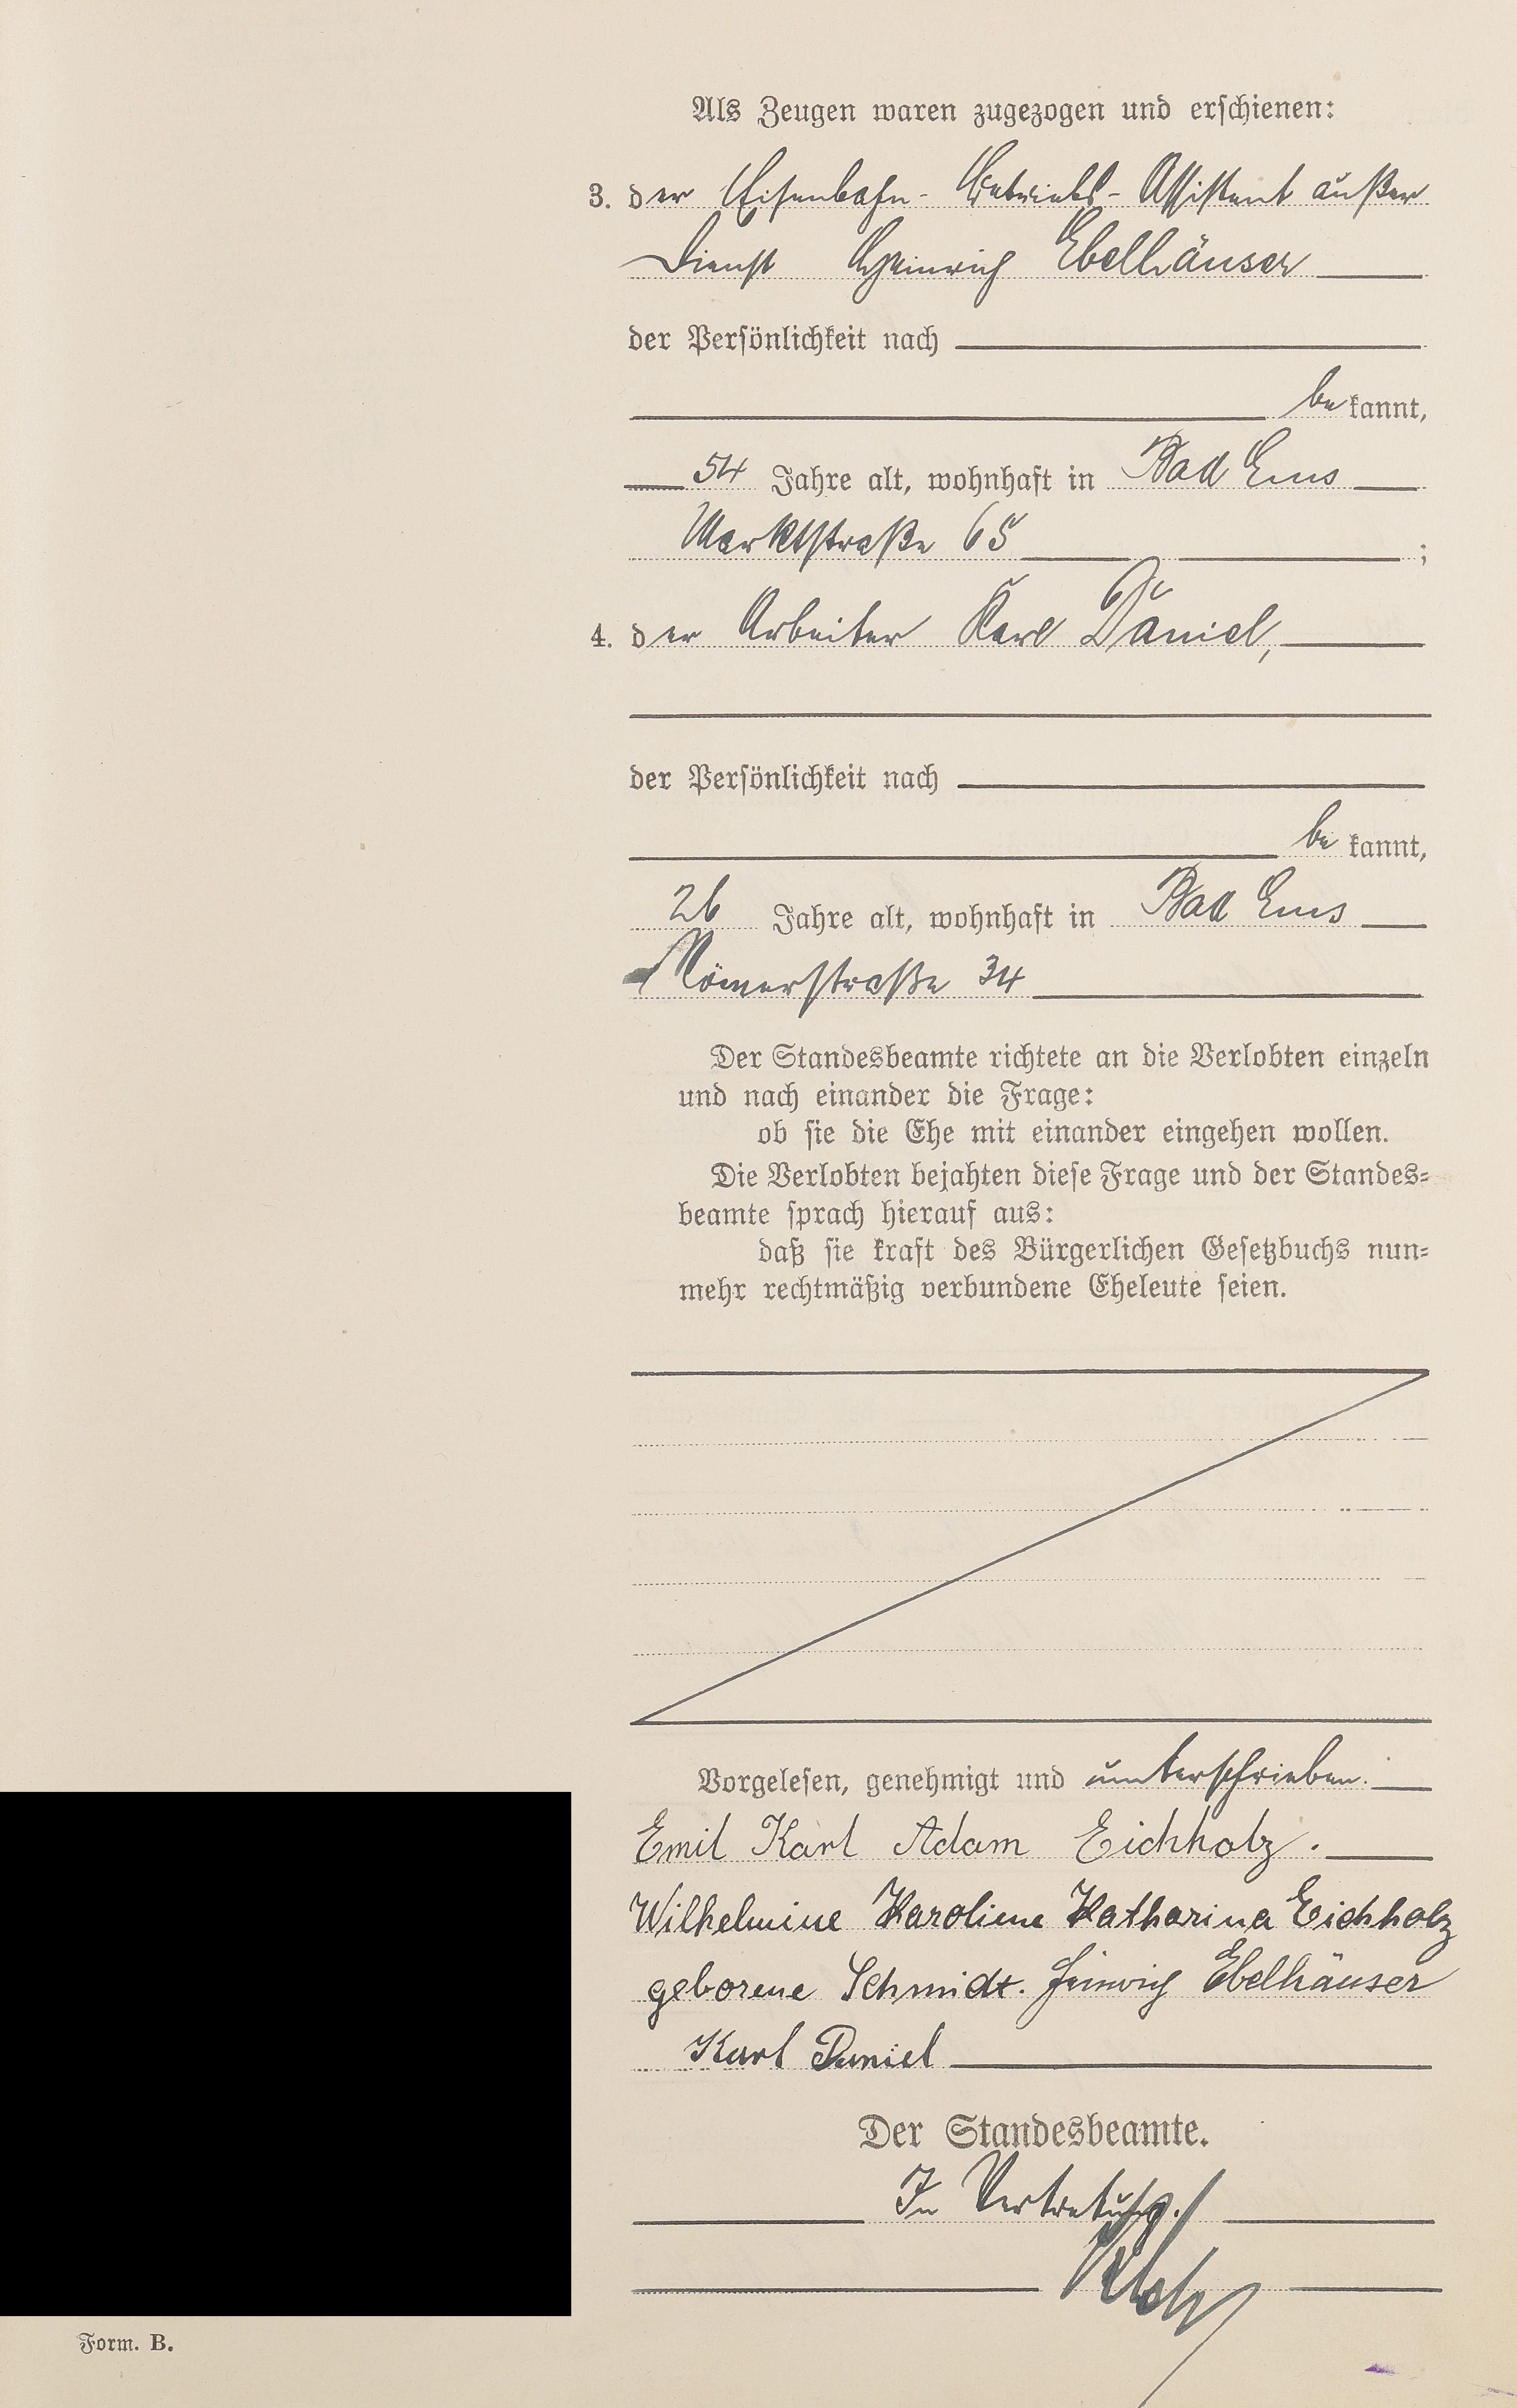 Als Zeugen waren zugezogen und erschienen:
3. der Eisenbahn-Betriebs-Assistent außer
Dienst Heinrich Ebelhäuser
der Persönlichkeit nach
be kannt,
54 Jahre alt, wohnhaft in Bad Ems
Marktstraße 65 ;
4. der Arbeiter Karl Daniel,
der Persönlichkeit nach
be kannt,
26 Jahre alt, wohnhaft in Bad Ems
Römerstraße 34
Der Standesbeamte richtete an die Verlobten einzeln
und nach einander die Frage:
ob sie die Ehe mit einander eingehen wollen.
Die Verlobten bejahten diese Frage und der Standes-
beamte sprach hierauf aus:
daß sie kraft des Bürgerlichen Gesetzbuchs nun-
mehr rechtmäßig verbundene Eheleute seien.
Vorgelesen, genehmigt und unterschrieben.
Emil Karl Adam Eichholz.
Wilhelmine Karoline Katharina Eichholz
geborene Schmidt. Heinrich Ebelhäuser
Karl Daniel
Der Standesbeamte.
In Vertretung.
Form. B.